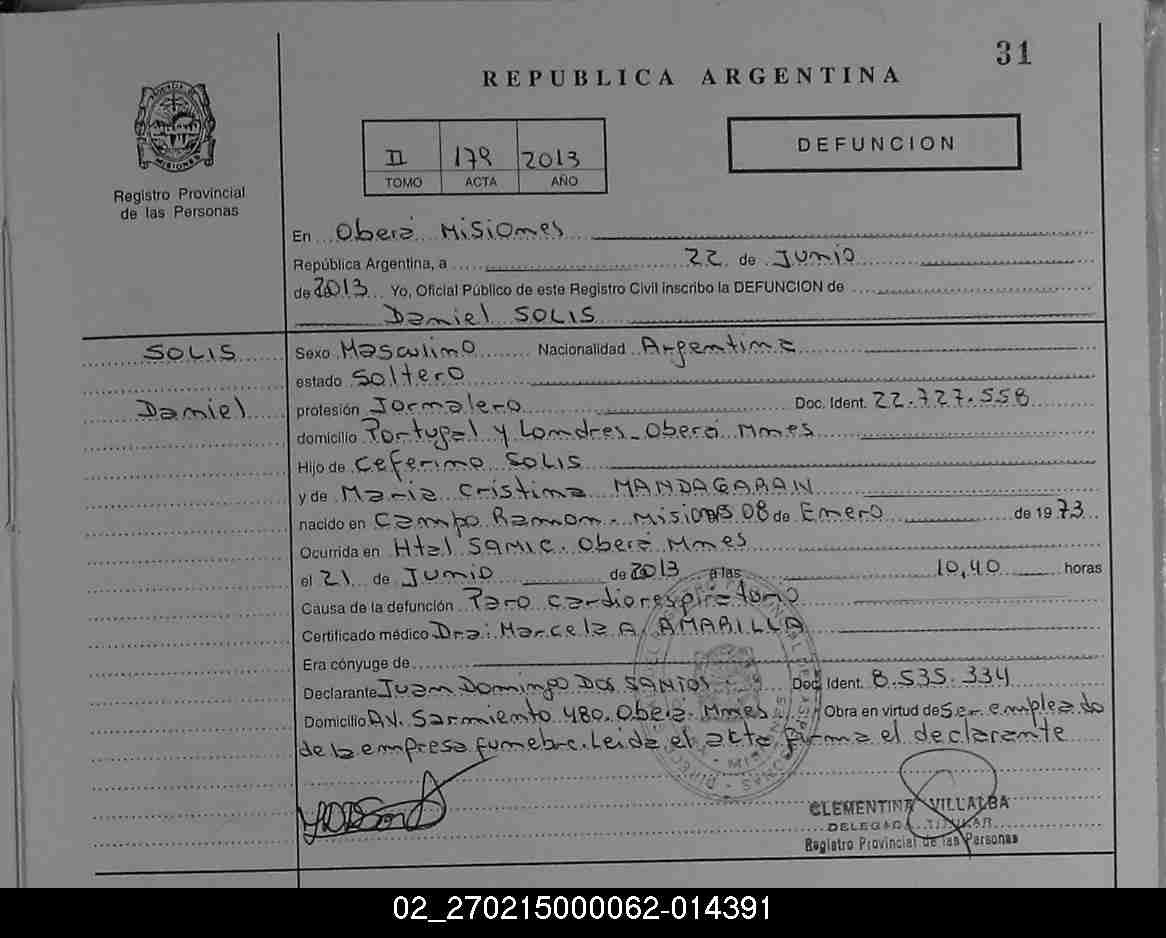 31
REPUBLICA ARGENTINA
MISIONES
Registro Provincial
de las Personas
II 179 2013
TOMO ACTA AÑO
DEFUNCION
En Oberá Misiones
República Argentina, a 22 de Junio
de 2013 Yo, Oficial Público de este Registro Civil inscribo la DEFUNCION de
Daniel SOLIS
SOLIS
Daniel
Sexo Masculino Nacionalidad Argentina
estado Soltero
profesión Jornalero Doc. Ident. 22.727.558
domicilio Portugal y Londres - Oberá Mnes
Hijo de Ceferino SOLIS
y de Maria Cristina MANDAGARAN
nacido en Campo Ramon - Misiones 08 de Enero de 1973
Ocurrida en Htal SAMIC. Oberá Mnes
el 21 de Junio de 2013 a las 10,40 horas
Causa de la defunción Paro cardiorespiratorio
Certificado médico Dra: Marcela A. AMARILLA
Era cónyuge de
Declarante Juan Domingo DOS SANTOS Doc. Ident. 8.535.334
Domicilio Av. Sarmiento 480. Oberá Mnes Obra en virtud de Ser empleado
de la empresa funebre. Leida el acta firma el declarante
CLEMENTINA VILLALBA
DELEGADA TITULAR
Registro Provincial de las Personas
02_270215000062-014391